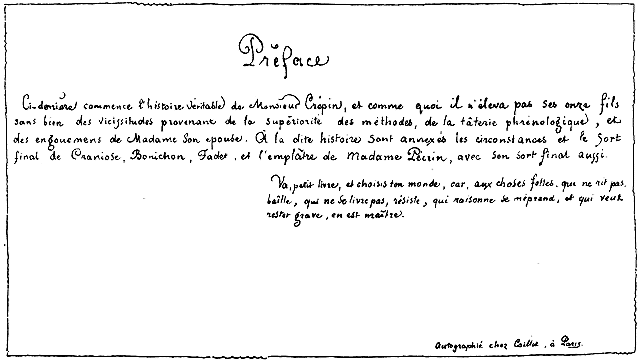 Préface
Ci-derrière commence l'histoire véritable de Monsieur Crépin, et comme quoi il n'éleva pas ses onze fils
sans bien des vicissitudes provenant de la supériorité des méthodes, de la tâterie phrénologique, et
des engouemens de Madame son epouse. A la dite histoire sont annexés les circonstances et le sort
final de Craniose, Bonichon, Fadet, et l'emplâtre de Madame Crépin, avec son sort final aussi.
Va, petit livre, et choisis ton monde, car, aux choses folles, qui ne rit pas,
baille, qui ne se livre pas, résiste, qui raisonne se méprend, et qui veut
rester grave, en est maître.
Autographié chez Caillet, à Paris.